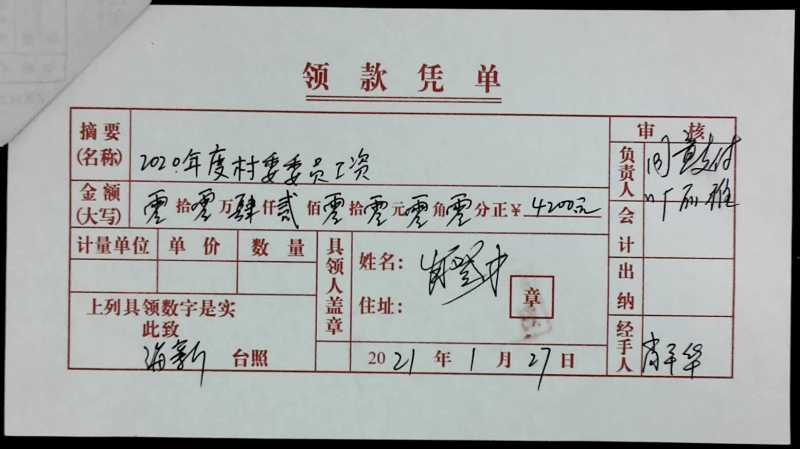 领款凭单
摘要(名称) 2020年度村委委员工资
审核
金额(大写) 零拾零万肆仟贰佰零拾零元零角零分正¥4200元
负责人 同意支付
会计
计量单位 单价 数量
具领人盖章
姓名:
住址:
章
出纳
上列具领数字是实
此致
海新 台照
2021年1月27日
经手人 肖平华